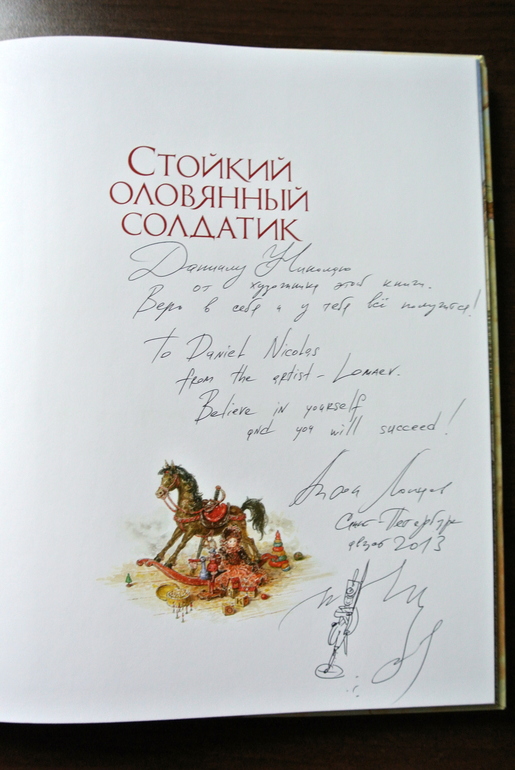 СТОЙКИЙ
ОЛОВЯННЫЙ
СОЛДАТИК
Даниилу Николасу
от художника этой книги.
Верь в себя и у тебя всё получится!
To Daniel Nicolas
from the artist - Lomaev.
Believe in yourself
and you will succeed!
Антон Ломаев
Санкт-Петербург
2013